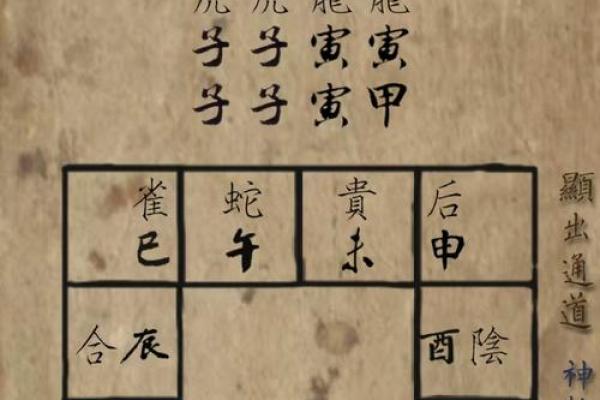 虎 虎 龍 龍
子 子 寅 寅
子 子 寅 甲
雀 蛇 貴 后
巳 午 未 申
合辰
酉陰
顯出通道
神